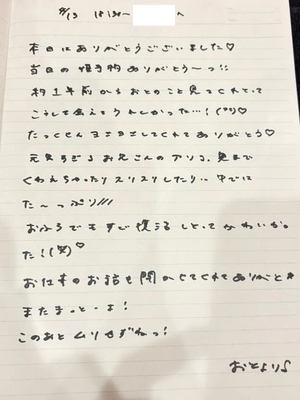 8/13 18:30〜 へ
本日はありがとうございました♡
当日の ありがとう〜っ!!
約1年前からおとのこと見てくれてて
こうして会えてうれしかった…!(^o^)♡
たっくさんヨシヨシしてくれてありがとう♡
元気すぎるお兄さんの 、奥まで
くわえちゃったりスリスリしたり… 中でに
た〜っぷり///
おふろでもすぐ復活しててかわいかっ
た!(笑)♡
お仕事のお話も聞かせてくれてありがと
またまってるよ!
このあとムリせずねっ!
おとより♪